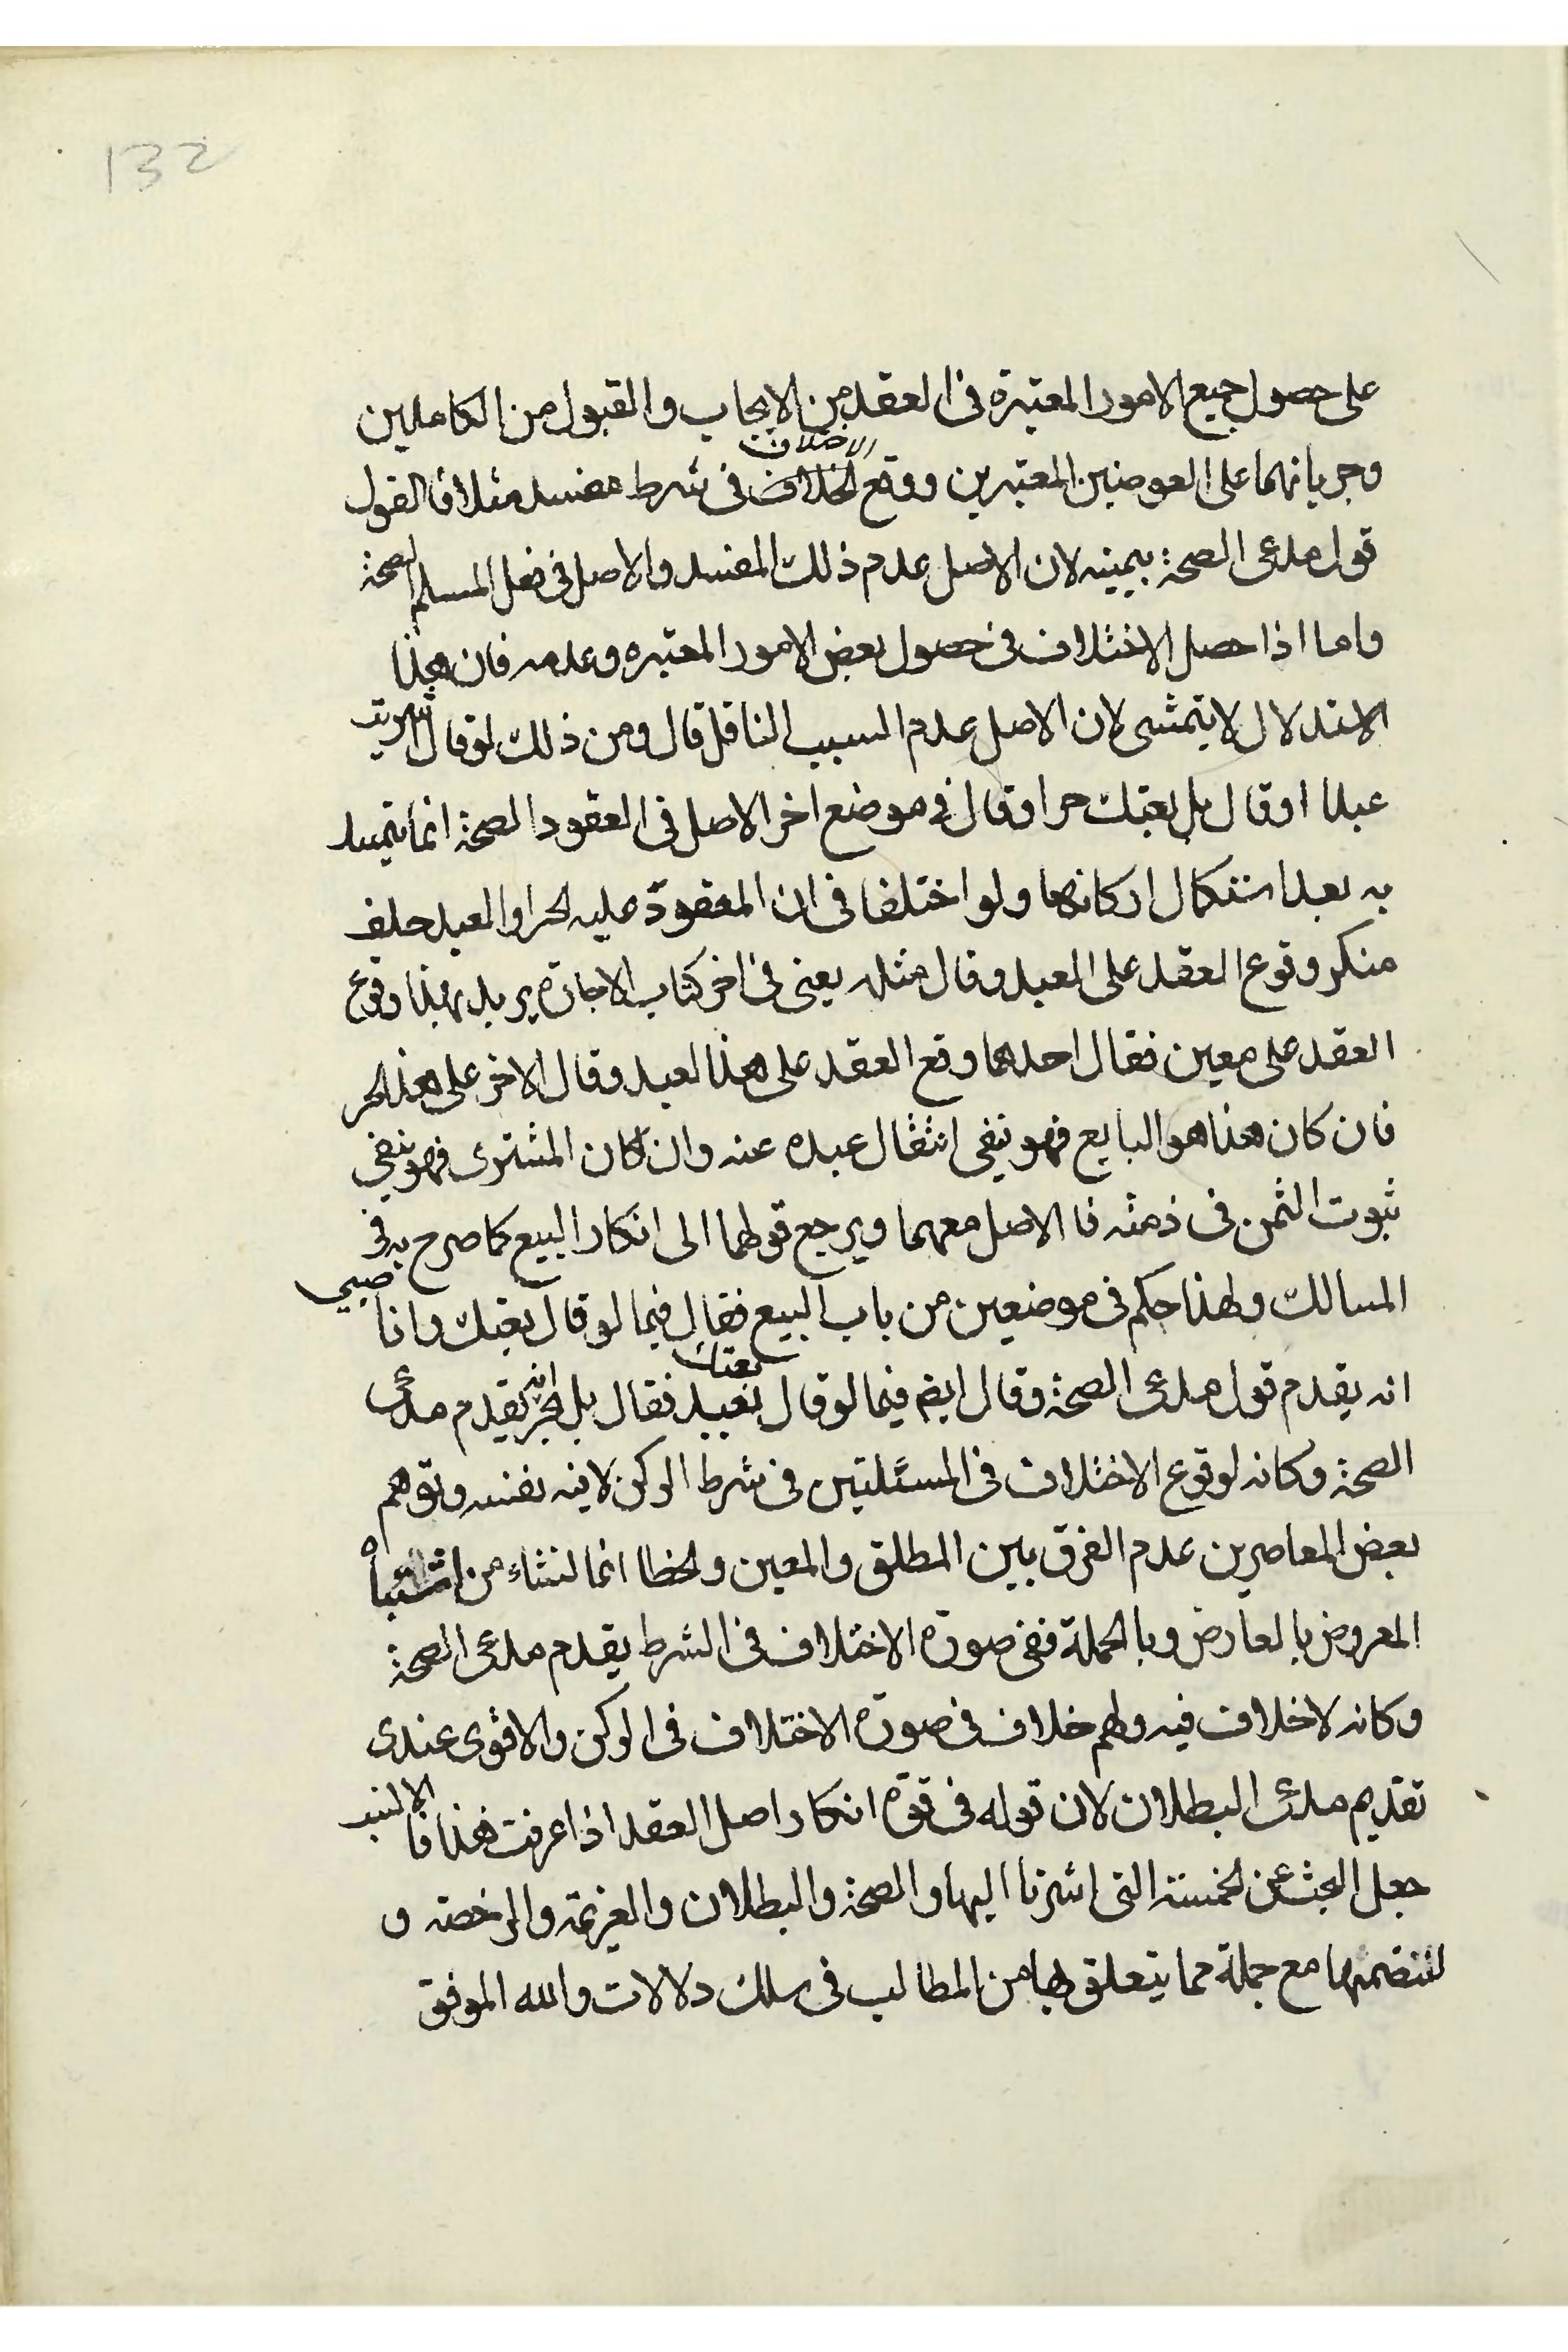 132
على حصول جميع الامور المعتبرة فى العقد من الايجاب والقبول من الكاملين
الاختلاف
وجريانهما على العوضين المعتبرين ووقع الخلاف فى شرط مفسد مثلا فالقول
قول مدعى الصحة بيمينه لان الاصل عدم ذلك المفسد والاصل فى فعل المسلم الصحة
واما اذا حصل الاختلاف فى حصول بعض الامور المعتبره وعدمه فان هذا
الاستدلال لا يتمشى لان الاصل عدم السبب الناقل قال ومن ذلك لو قال اشتريت
عبدا او قال بل بعتك حرا وقال فى موضع اخر الاصل فى العقود الصحة انما يتمسك
به بعد استكمال اركانها ولو اختلفا فى ان المعقود عليه الحر او العبد حلف
منكر وقوع العقد على العبد وقال مثله يعنى فى اخر كتاب الاجارة يريد بهذا وقوع
العقد على معين فقال احدهما وقع العقد على هذا لعبد وقال الاخر على هذا الحر
فان كان هذا هو البايع فهو ينفى انتقال عبده عنه وان كان المشترى فهو ينفى
ثبوت الثمن فى ذمته فا الاصل معهما ويرجع قولهما الى انكار البيع كما صرح به فى
المسالك ولهذا حكم فى موضعين من باب البيع فقال فيما لو قال بعتك وانا صبى
بعتك
انه يقدم قول مدعى الصحة وقال ايضا فيما لو قال بعبد فقال بل بحر انه يقدم مدعى
الصحة وكانه لوقوع الاختلاف فى المسئلتين فى شرط الركن لا فيه نفسه وتوهم
بعض المعاصرين عدم الفرق بين المطلق والمعين والخطا انما لنشاء من اشتباه
المعروض بالعارض وبالجملة ففى صورة الاختلاف فى الشرط يقدم مدعى الصحة
وكانه لاخلاف فيه ولهم خلاف فى صورة الاختلاف فى الركن والاقوى عندى
تقديم مدعى البطلان لان قوله فى قوة انكار اصل العقد اذا عرفت هذا فا
جعل البحث عن الخمسة التى اشرنا اليها والصحة والبطلان والعزيمة والرخصة و
لتنضمها مع جملة مما يتعلق بها من المطالب فى سلك دلالات والله الموفق